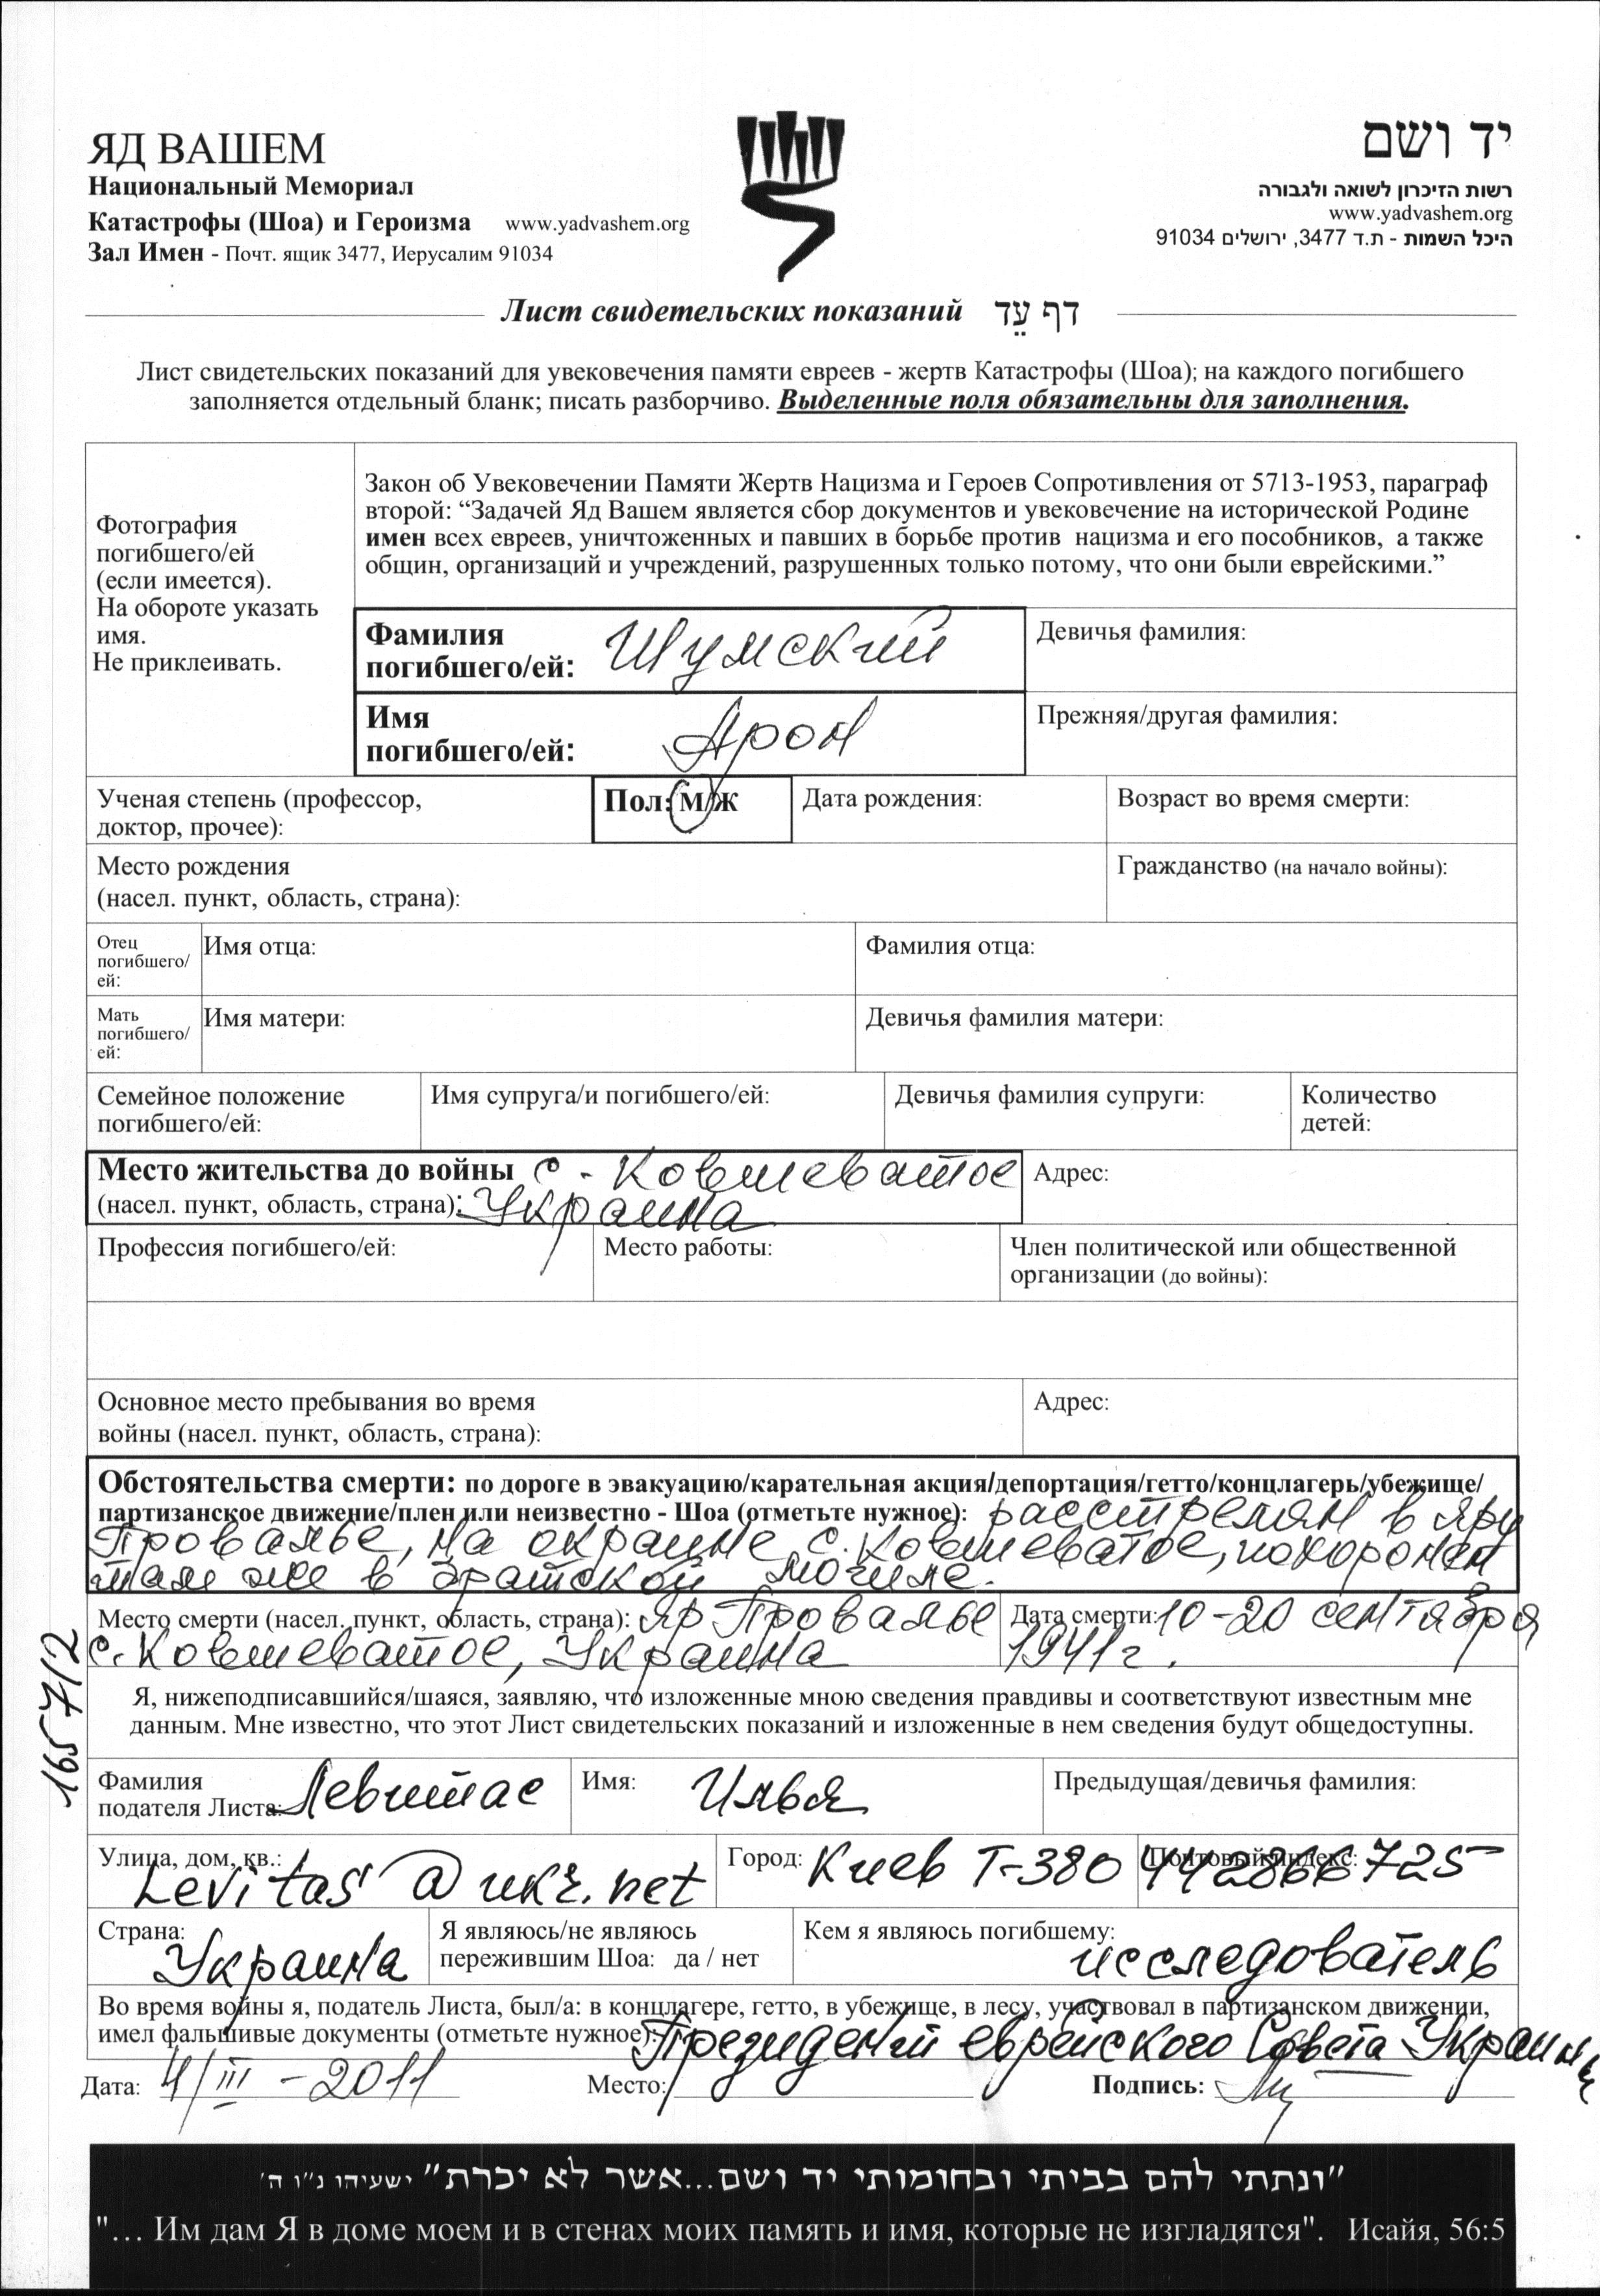 ЯД ВАШЕМ
Национальный Мемориал
Катастрофы (Шоа) и Героизма www.yadvashem.org
Зал Имен - Почт. ящик 3477, Иерусалим 91034
יד ושם
רשות הזיכרון לשואה ולגבורה
www.yadvashem.org
היכל השמות - ת.ד 3477, ירושלים 91034
Лист свидетельских показаний דף עֵד
Лист свидетельских показаний для увековечения памяти евреев - жертв Катастрофы (Шоа); на каждого погибшего
заполняется отдельный бланк; писать разборчиво. Выделенные поля обязательны для заполнения.
Фотография
погибшего/ей
(если имеется).
На обороте указать
имя.
Не приклеивать.
Закон об Увековечении Памяти Жертв Нацизма и Героев Сопротивления от 5713-1953, параграф
второй: “Задачей Яд Вашем является сбор документов и увековечение на исторической Родине
имен всех евреев, уничтоженных и павших в борьбе против нацизма и его пособников, а также
общин, организаций и учреждений, разрушенных только потому, что они были еврейскими.”
Фамилия
погибшего/ей: Шумский
Девичья фамилия:
Имя
погибшего/ей: Арон
Прежняя/другая фамилия:
Ученая степень (профессор,
доктор, прочее):
Пол: М/Ж
Дата рождения:
Возраст во время смерти:
Место рождения
(насел. пункт, область, страна):
Гражданство (на начало войны):
Отец
погибшего/
ей:
Имя отца:
Фамилия отца:
Мать
погибшего/
ей:
Имя матери:
Девичья фамилия матери:
Семейное положение
погибшего/ей:
Имя супруга/и погибшего/ей:
Девичья фамилия супруги:
Количество
детей:
Место жительства до войны с. Ковшеватое
(насел. пункт, область, страна): Украина
Адрес:
Профессия погибшего/ей:
Место работы:
Член политической или общественной
организации (до войны):
Основное место пребывания во время
войны (насел. пункт, область, страна):
Адрес:
Обстоятельства смерти: по дороге в эвакуацию/карательная акция/депортация/гетто/концлагерь/убежище/
партизанское движение/плен или неизвестно - Шоа (отметьте нужное): расстрелян в яру
Провалье, на окраине с. Ковшеватое, похоронен
там же в братской могиле.
Место смерти (насел. пункт, область, страна): яр Провалье
с. Ковшеватое, Украина
Дата смерти: 10-20 сентября
1941 г.
165712
Я, нижеподписавшийся/шаяся, заявляю, что изложенные мною сведения правдивы и соответствуют известным мне
данным. Мне известно, что этот Лист свидетельских показаний и изложенные в нем сведения будут общедоступны.
Фамилия
подателя Листа: Левитас
Имя: Илья
Предыдущая/девичья фамилия:
Улица, дом, кв.:
Levitas@ukr.net
Город: Киев Т-380 442866725
Почтовый индекс:
Страна:
Украина
Я являюсь/не являюсь
пережившим Шоа: да / нет
Кем я являюсь погибшему:
исследователь
Во время войны я, податель Листа, был/а: в концлагере, гетто, в убежище, в лесу, участвовал в партизанском движении,
имел фальшивые документы (отметьте нужное): Президент еврейского Совета Украины
Дата: 4/III-2011
Место:
Подпись:
"ונתתי להם בביתי ובחומותי יד ושם...אשר לא יכרת" ישעיהו נ"ו ה'
"… Им дам Я в доме моем и в стенах моих память и имя, которые не изгладятся". Исайя, 56:5